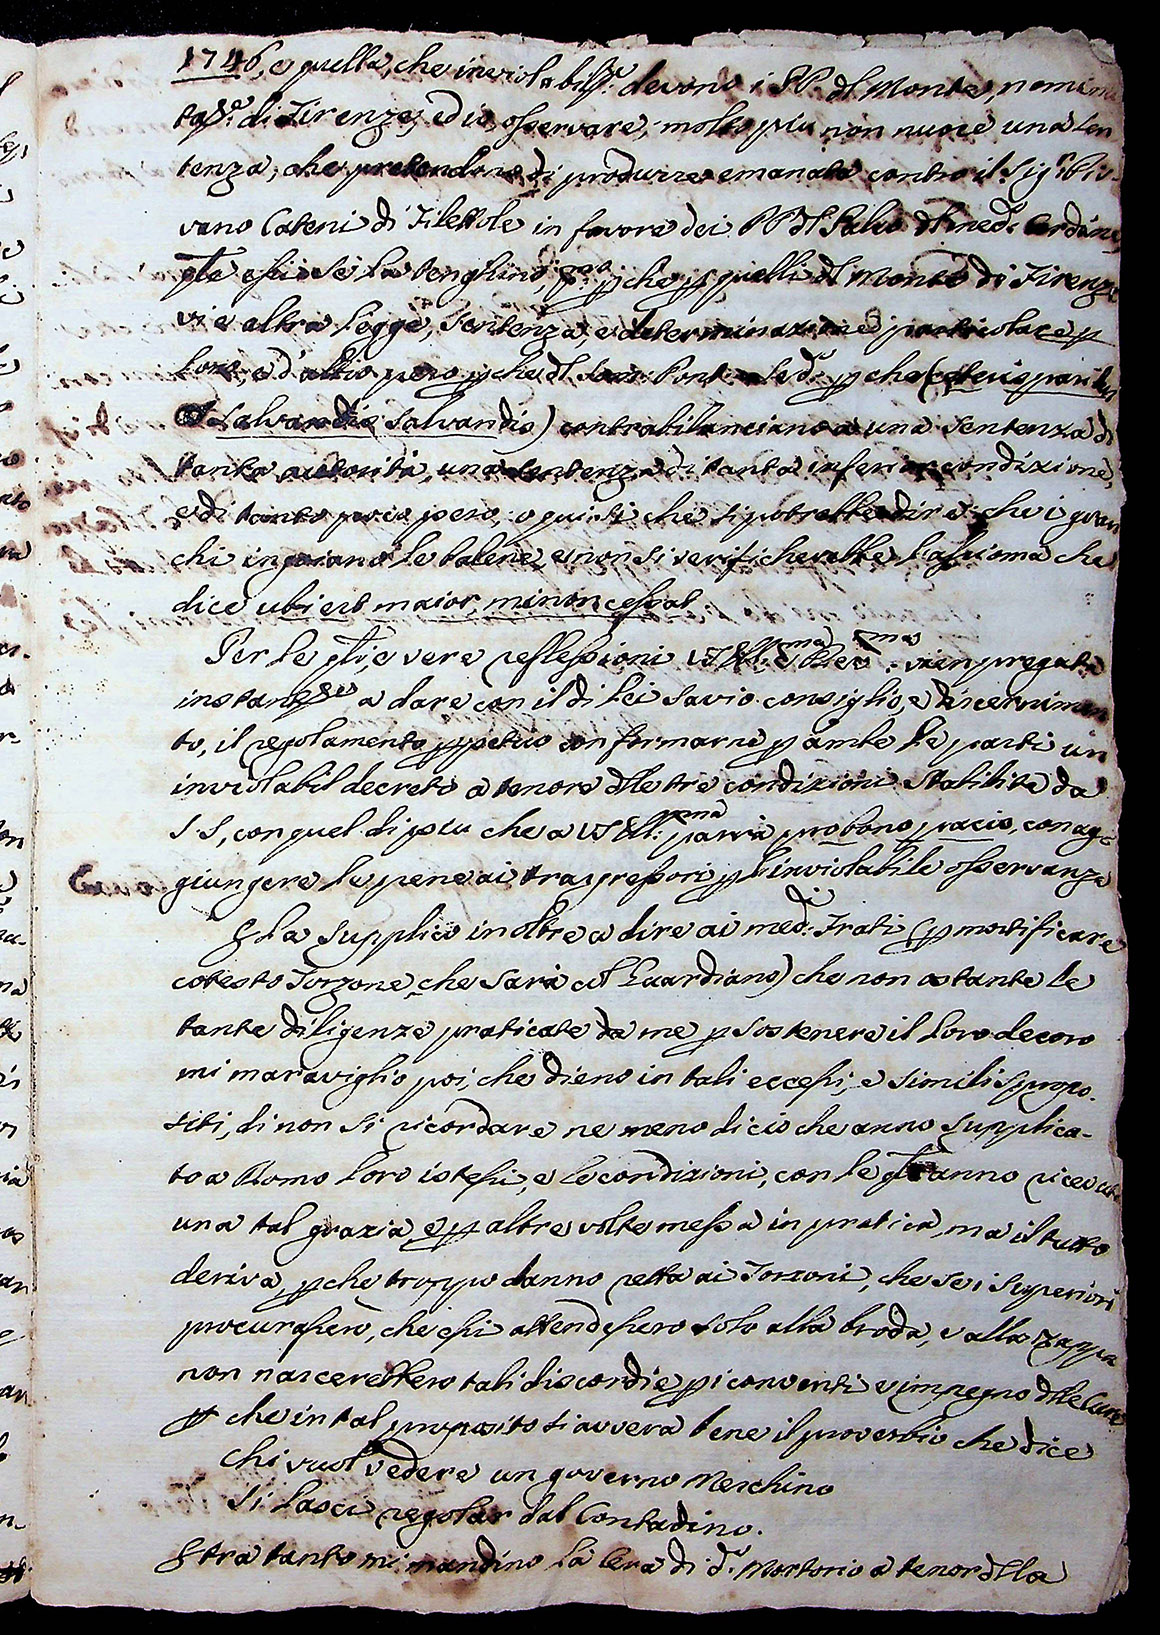 1746, e quella, che inviolabilme. devono i PP. dl Monte, nomi
tase. di Firenze, ed io osservare, molto piu non nuoce una sen
tenza, che pretendono di produrre emanata contro il Sigr. Pio-
vano Cateni di Filettole in favore dei PP dl Palco
essi se la tenghino, pmo. pche p quelli dl Monte di Firenze
vi è altra legge, sentenza, e determinazione particolare p
loro, e d'altro pero pche dl Som: Pont pche (ceteris paribus
et salvandis salvandis) contrabilanciano a una sentenza di
tanta autorità, una sentenza di tanta inferior condizione,
e di tanto poco pero, o quindi che si potrebbe dire che i gran
chi ingoiano le balene, e non si verificherebbe l'assioma che
dice ubi erit maior, minor cessat
Per le qli e vere reflessioni VS Ill:ma e Rev:ma vien pregata
instanteme a dare con il di lei savio consiglio, e discernimen
to, il regolamento ppetuo con formarne p ambe le parti un
inviolabil decreto a tenore dlle tre condizioni stabilite da
SS, con quel di piu che a VS Ill:ma parrà pro bono pacis, con ag-
giungere le pene ai trasgressori p l'inviolabile osservanza
E la supplico inoltre a dire ai medi: Frati (p mortificare
cotesto Torzone, che sarà cotl Guardiano) che non ostante le
tante diligenze praticate da me p sostenere il loro decoro
mi maraviglio poi, che dieno in tali eccessi, e simili spropo-
siti, di non si ricordare ne meno di cio che anno supplica-
to a Roma loro istessi, e le condizioni, con le qli anno ricevuta
una tal grazia, e pp altre volte messa in pratica, ma il tutto
deriva, pche troppo danno retta ai Torzoni, che se i superiori
procurassero, che essi attendessero solo alla broda, e alla zappa
non nascerebbero tali discordie p i conventi e impegno dlle Cure
p che in tal proposito si avvera bene il proverbio che dice
Chi vuol vedere un governo meschino
Si lasci regolar dal Contadino.
E tra tanto mi mandino la cera di do. Mortorio a tenor dlla